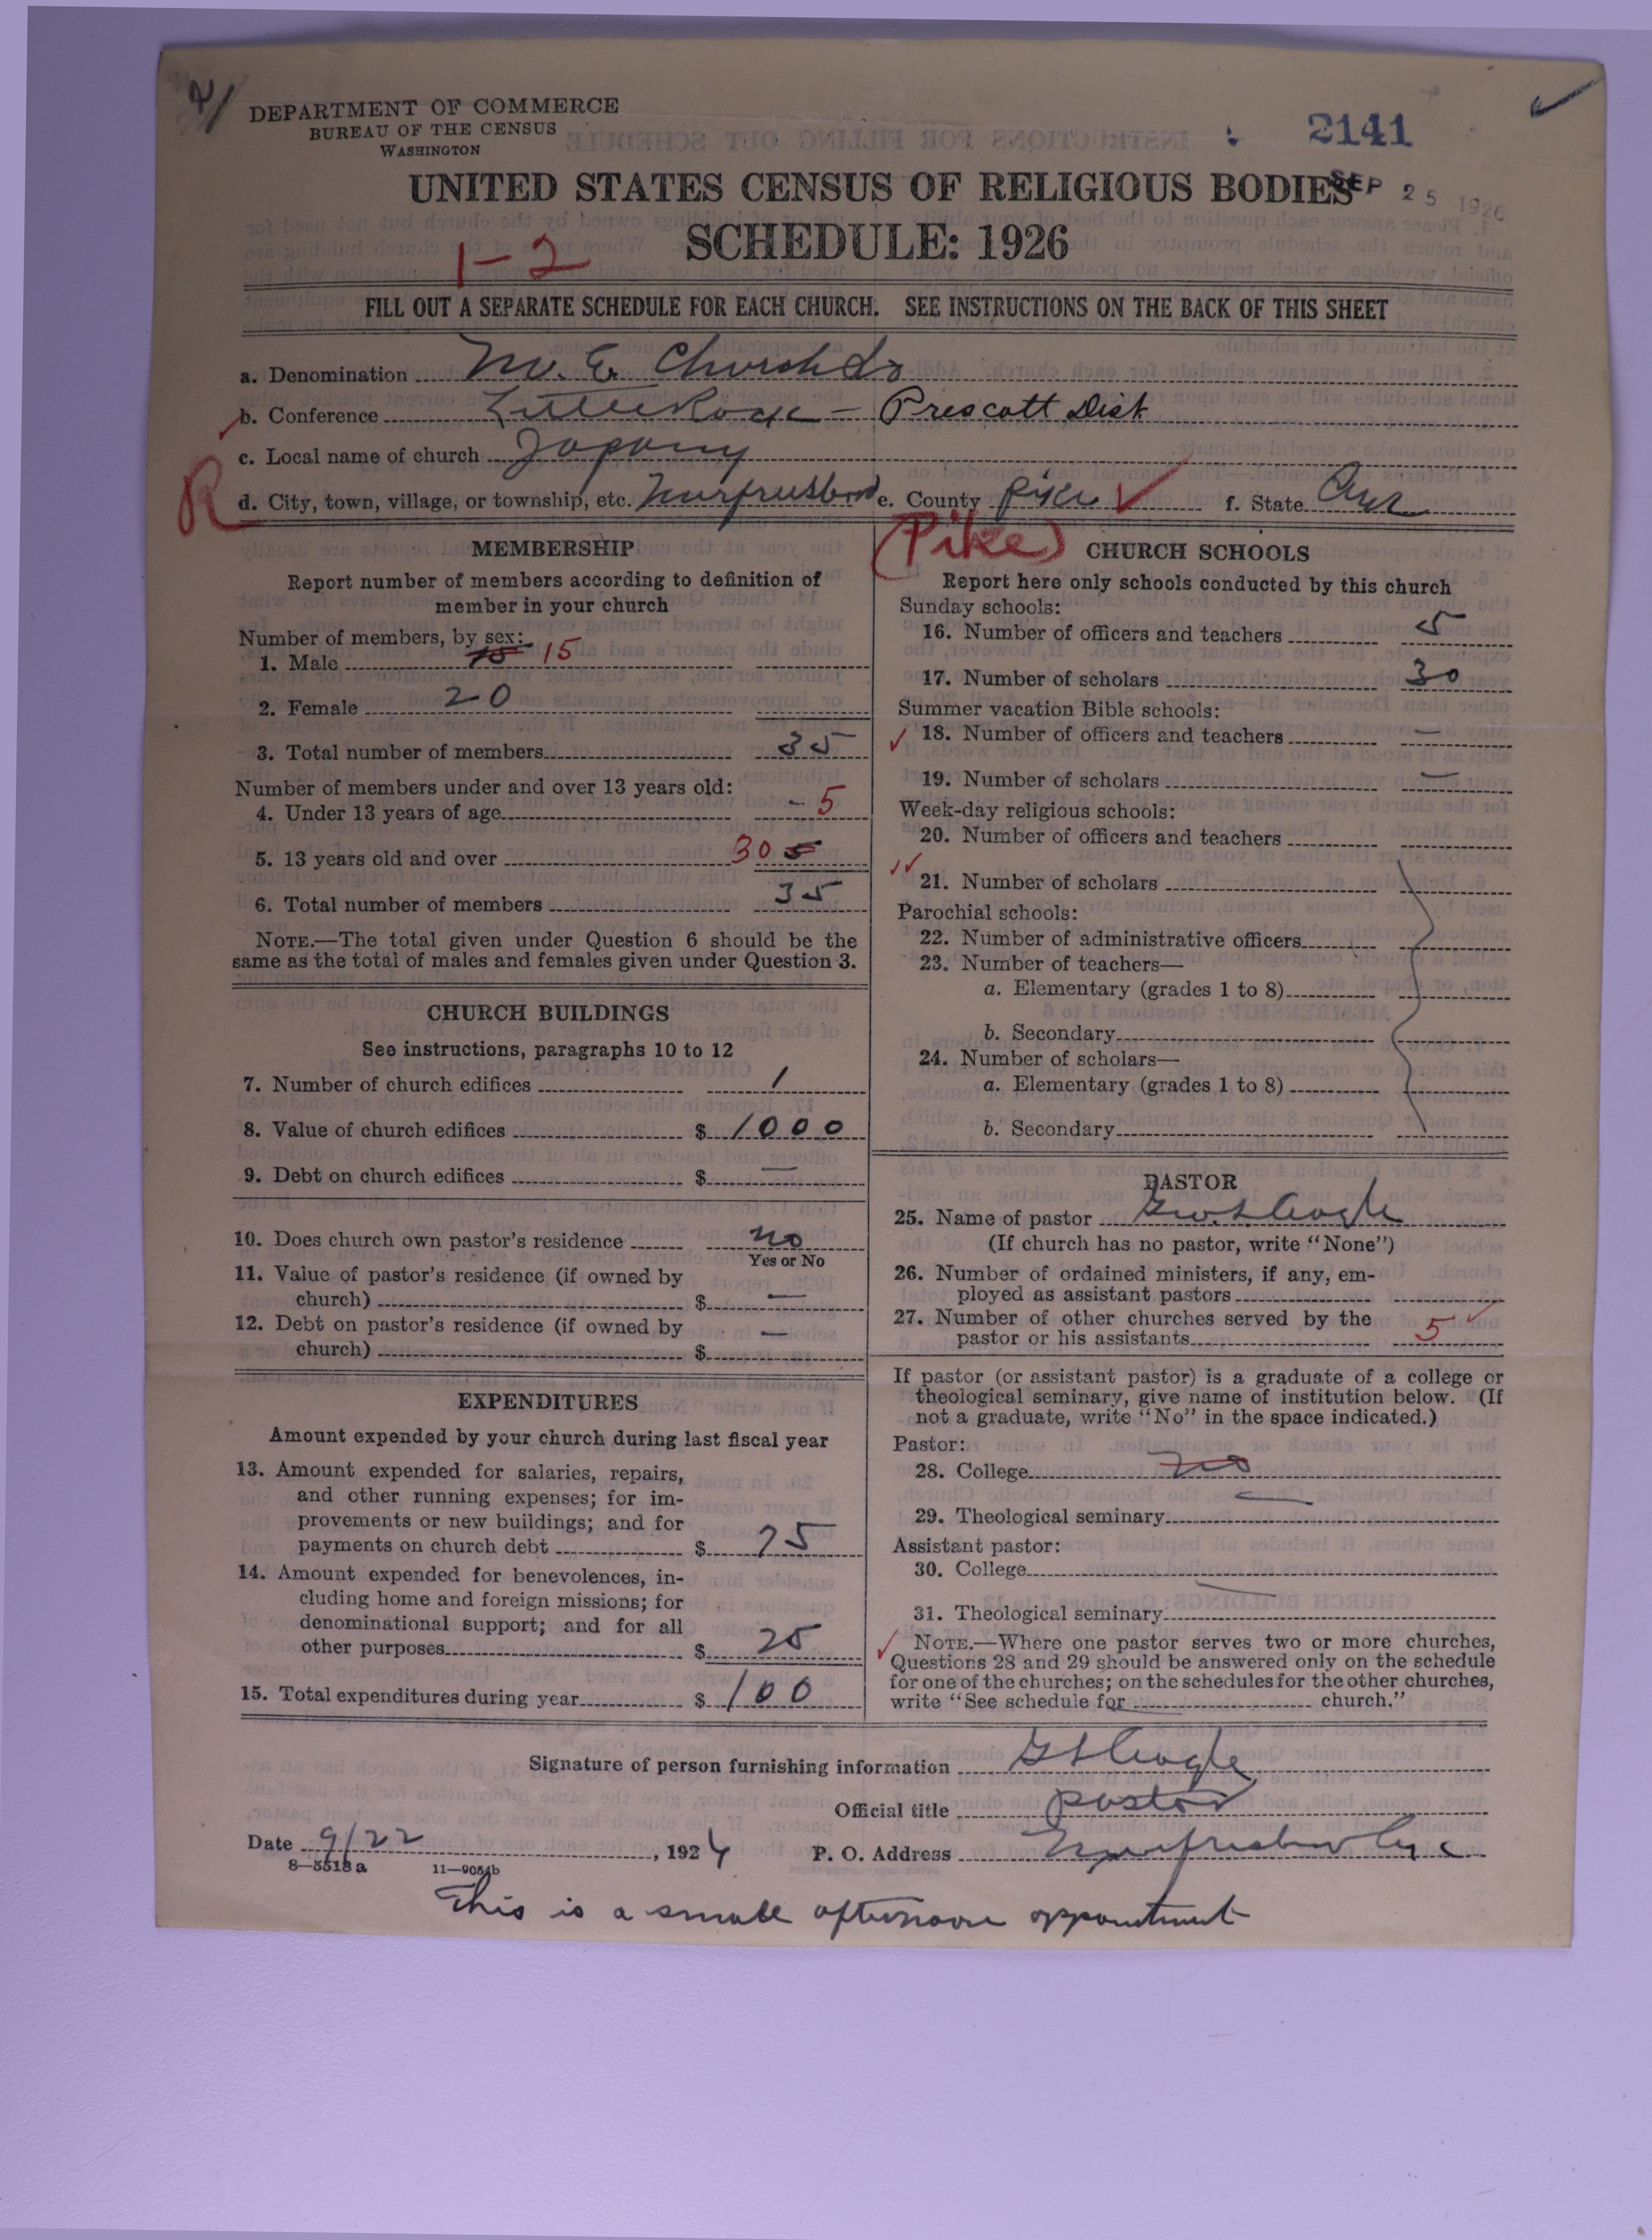 DEPARTMENT OF COMMERCE
BUREAU OF THE CENSUS
WASHINGTON
2141
SEP 25 1926
UNITED STATES CENSUS OF RELIGIOUS BODIES
SCHEDULE: 1926
1-2
FILL OUT A SEPARATE SCHEDULE FOR EACH CHURCH. SEE INSTRUCTIONS ON THE BACK OF THIS SHEET
a. Denomination M. E. Church So
b. Conference Little Rock - Prescott Dist
c. Local name of church
R
d. City, town, village, or township, etc. e. County Pike f. State Ark
(Pike)
MEMBERSHIP
Report number of members according to definition of
member in your church
Number of members, by sex:
1. Male 15 15
2. Female 20
3. Total number of members 35
Number of members under and over 13 years old:
4. Under 13 years of age - 5
5. 13 years old and over 30 5
6. Total number of members 35
NOTE.—The total given under Question 6 should be the
same as the total of males and females given under Question 3.
CHURCH BUILDINGS
See instructions, paragraphs 10 to 12
7. Number of church edifices 1
8. Value of church edifices $ 1000
9. Debt on church edifices $ —
10. Does church own pastor's residence no
Yes or No
11. Value of pastor's residence (if owned by
church) $ —
12. Debt on pastor's residence (if owned by
church) $ —
EXPENDITURES
Amount expended by your church during last fiscal year
13. Amount expended for salaries, repairs,
and other running expenses; for im-
provements or new buildings; and for
payments on church debt $ 75
14. Amount expended for benevolences, in-
cluding home and foreign missions; for
denominational support; and for all
other purposes $ 25
15. Total expenditures during year $ 100
CHURCH SCHOOLS
Report here only schools conducted by this church
Sunday schools:
16. Number of officers and teachers 5
17. Number of scholars 30
Summer vacation Bible schools:
18. Number of officers and teachers —
19. Number of scholars —
Week-day religious schools:
20. Number of officers and teachers
21. Number of scholars
Parochial schools:
22. Number of administrative officers
23. Number of teachers—
a. Elementary (grades 1 to 8)
b. Secondary
24. Number of scholars—
a. Elementary (grades 1 to 8)
b. Secondary
PASTOR
25. Name of pastor
(If church has no pastor, write "None")
26. Number of ordained ministers, if any, em-
ployed as assistant pastors
27. Number of other churches served by the
pastor or his assistants 5
If pastor (or assistant pastor) is a graduate of a college or
theological seminary, give name of institution below. (If
not a graduate, write "No" in the space indicated.)
Pastor:
28. College no
29. Theological seminary
Assistant pastor:
30. College
31. Theological seminary
NOTE.—Where one pastor serves two or more churches,
Questions 28 and 29 should be answered only on the schedule
for one of the churches; on the schedules for the other churches,
write "See schedule for church."
Signature of person furnishing information
Official title pastor
Date 9/22, 192
P. O. Address
8—5518a 11—9054b
This is a small afternoon appointment